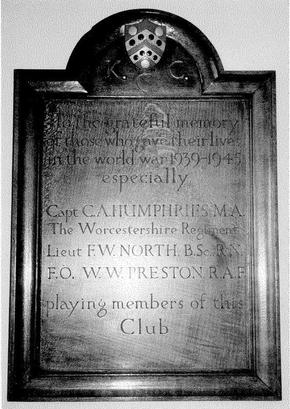 K C C
To the grateful memory
of those who gave their lives
in the world war 1939-1945
especially
Capt C.A.HUMPHRIES, M.A.
The Worcestershire Regiment
Lieut F.W. NORTH, B.Sc., R.N.
F.O. W.W. PRESTON R.A.F.
playing members of this
Club